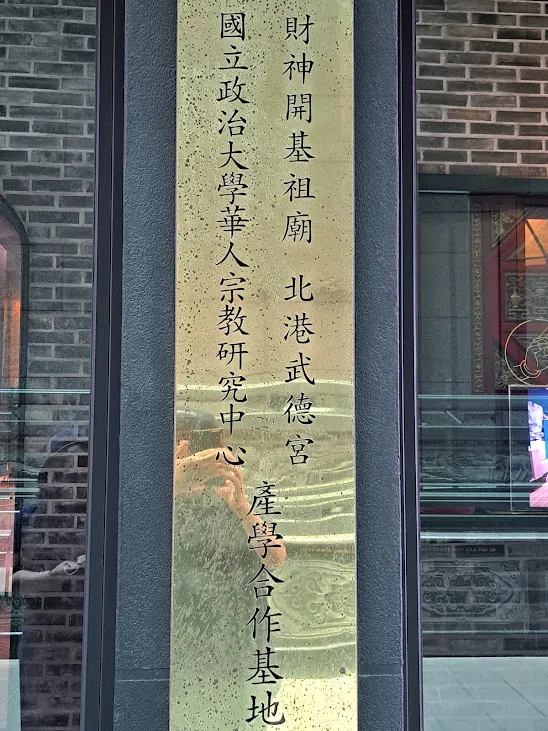 財神開基祖廟 北港武德宮
國立政治大學華人宗教研究中心
產學合作基地